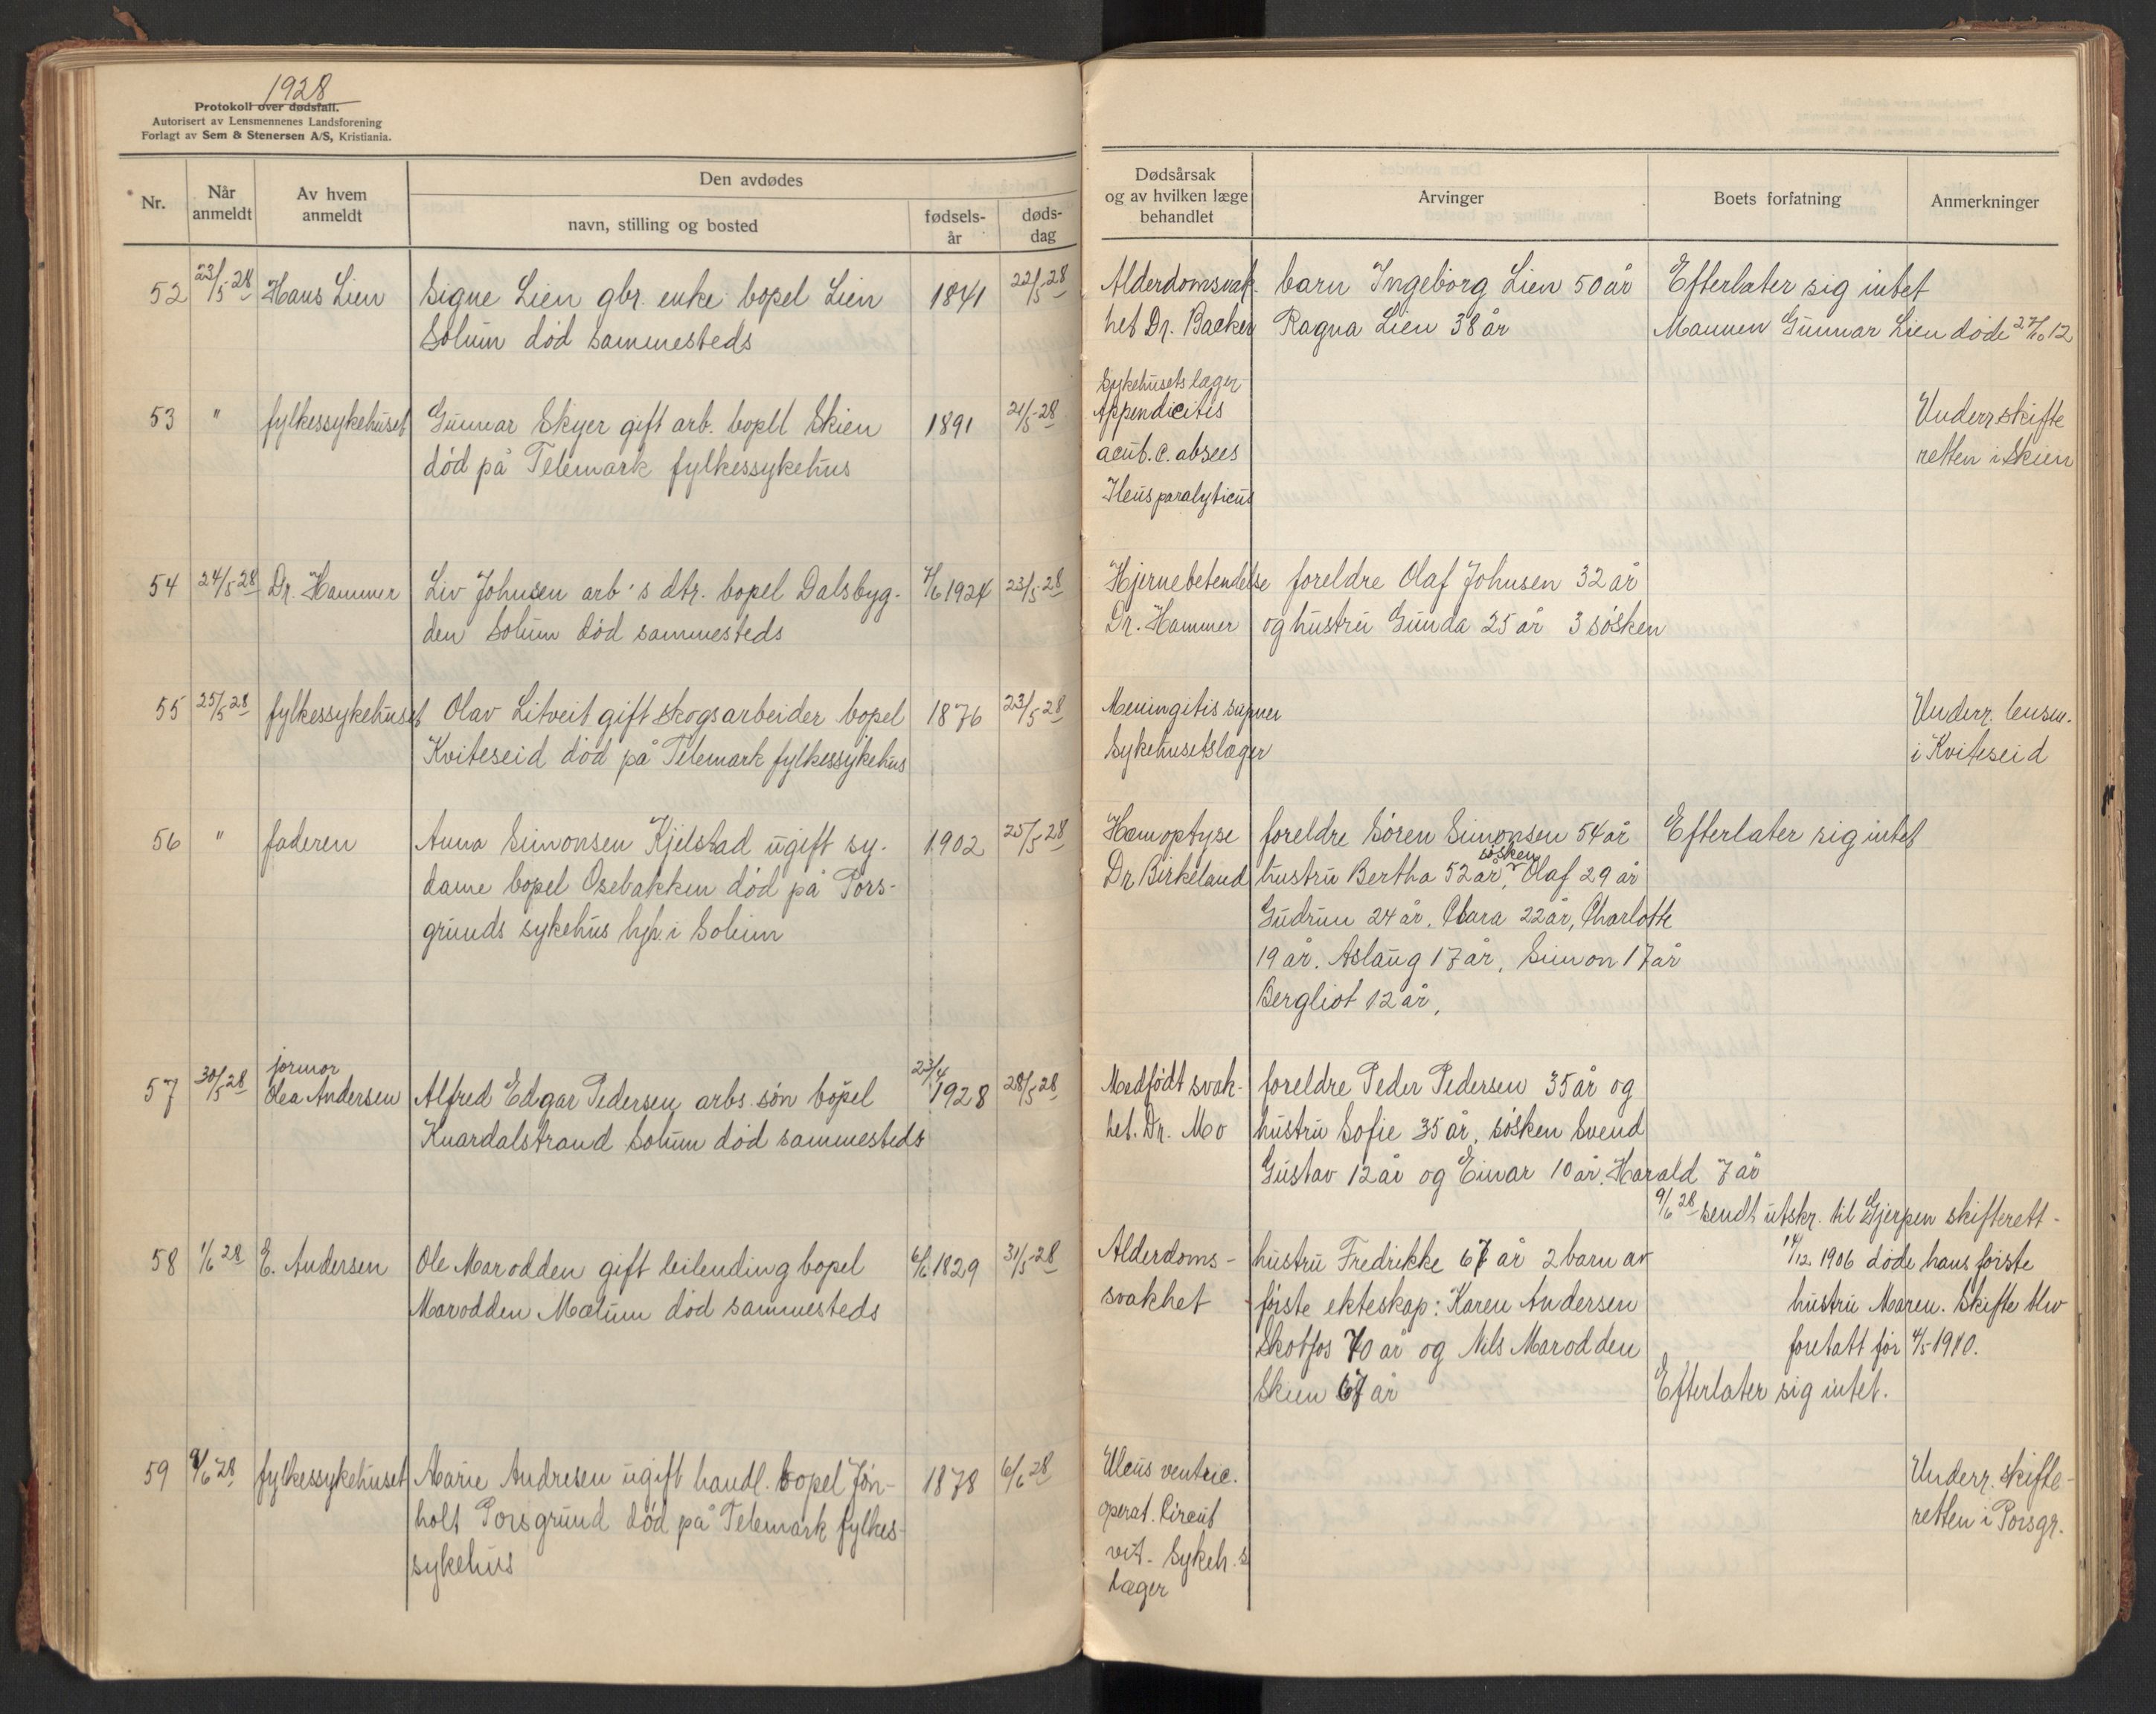 1928
Protokoll over dødsfall.
Autorisert av Lensmennenes Landsforening
Forlagt av Sem & Stenersen A/S, Kristiania.
Nr.
Når anmeldt
Av hvem anmeldt
Den avdødes
navn, stilling og bosted
fødsels-år
døds-dag
Dødsårsak
og av hvilken læge
behandlet
Arvinger
Boets forfatning
Anmerkninger
52 23/5 28 Hans Lien Signe Lien gbr. enke bopel Lien 1841 22/5 28
Solum död sammesteds
Alderdomsvak- barn Ingeborg Lien 50 år Efterlater sig intet
het Dr. Backer Ragna Lien 38 år Mannen Gunnar Lien döde 27/10 12
53 " fylkessykehuset Gunnar Skyer gift arb. bopll Skien 1891 21/5-28
död på Telemark fylkessykehus
Sykehusets læger
Appendicitis Underr. skifte
acut. c. absces retten i Skien
Ileus paralyticus
54 24/5 28 Dr. Hammer Liv Johnsen arb's dtr. bopel Dalsbyg- 7/6 1924 23/5-28
den Solum död sammesteds
Hjernebetendelse foreldre Olaf Johnsen 32 år
Dr. Hammer og hustru Gunda 25 år 3 sösken
55 25/5 28 fylkessykehuset Olav Litveit gift skogsarbeider bopel 1876 23/5 28
Kviteseid död på Telemark fylkessykehus
Meningitis Underr. lensm.
Sykehusetslæger i Kviteseid
56 " faderen Anna Simonsen Kjelstad ugift sy- 1902 25/5 28
dame bopel Osebakken död på Pors-
grunds sykehus hjh. i Solum
Hæmoptyse foreldre Sören Simonsen 54 år Efterlater sig intet
Dr Birkeland hustru Bertha 52 år, sösken Olaf 29 år
Gudrun 24 år, Clara 22 år, Charlotte
19 år. Aslaug 17 år, Simon 17 år
Bergliot 12 år,
57 30/5 28 jormor
Olea Andersen Alfred Edgar Pedersen arbs. sön bopel 23/4 1928 28/5 28
Knardalstrand Solum död sammesteds
Medfödt svak- foreldre Peder Pedersen 35 år og
het. Dr. Mo hustru Sofie 35 år, sösken Svend
Gustav 12 år og Einar 10 år. Harald 7 år
9/6 28 sendt utskr. til Gjerpen skifterett-
58 1/6 28 E. Andersen Ole Marodden gift leilending bopel 6/6 1829 31/5-28
Marodden Mælum död sammesteds
Alderdoms- hustru Fredrikke 67 år 2 barn av 14/12 1906 döde hans förste
svakhet förste ekteskap: Karen Andersen hustru Maren. Skifte blev
Skotfos 70 år og Nils Marodden foretatt för 4/5-1910.
Skien 67 år Efterlater sig intet.
59 9/6 28 fylkessykehuset Marie Andresen ugift handl. bopel Jön- 1878 6/6 28
holt Porsgrund död på Telemark fylkes-
sykehus
Ulcus ventric. Underr. skifte-
operat. Circut retten i Porsgr.
vit- Sykeh.s
læger